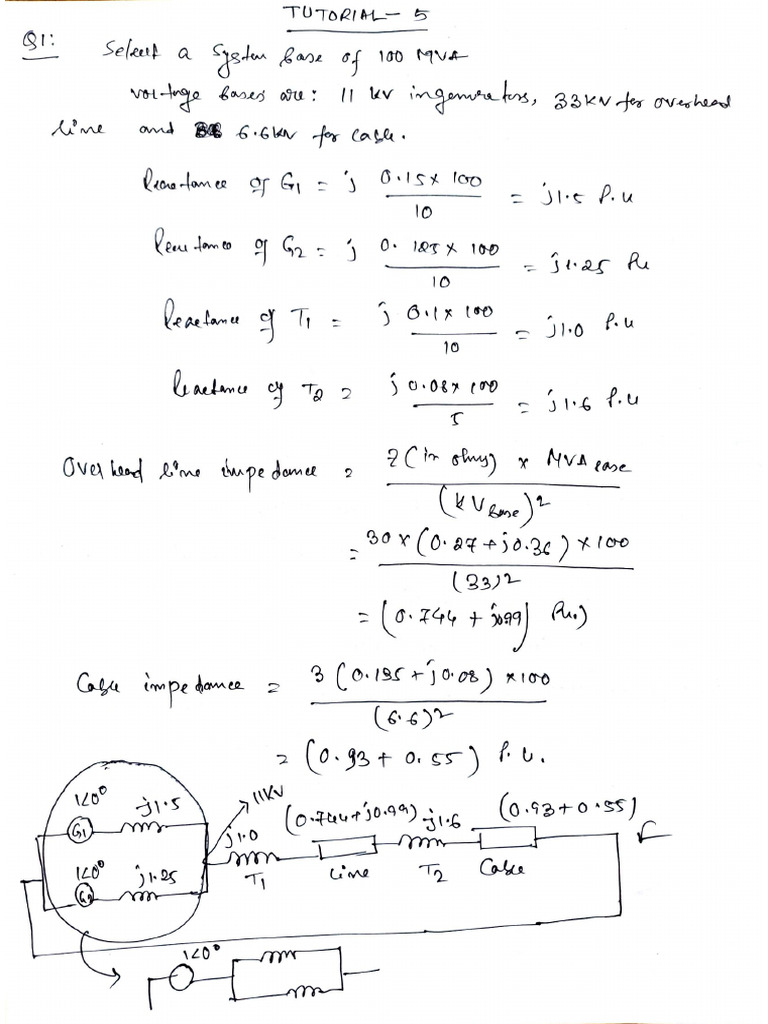 TUTORIAL-5
Q1: Select a System base of 100 MVA
voltage bases are: 11 kv in generators, 33kV for overhead
line and 6.6kV for cable.
Reactance of G1 = j 0.15 x 100 / 10 = j1.5 P.u
Reactance of G2 = j 0.125 x 100 / 10 = j1.25 Pu
Reactance of T1 = j 0.1 x 100 / 10 = j1.0 P.u
Reactance of T2 = j 0.08 x 100 / 5 = j1.6 P.u
Overhead line impedance = Z (in ohms) x MVA base / (kV Base)2
= 30 x (0.27 + j0.36) x 100 / (33)2
= (0.744 + j0.99) Pu.)
Cable impedance = 3 (0.135 + j0.08) x 100 / (6.6)2
= (0.93 + 0.55) P.u.
1∠0° j1.5 11kV
G1 j1.0 (0.744+j0.99) j1.6 (0.93+0.55)
1∠0° j1.25 T1 Line T2 Cable
G2
1∠0°